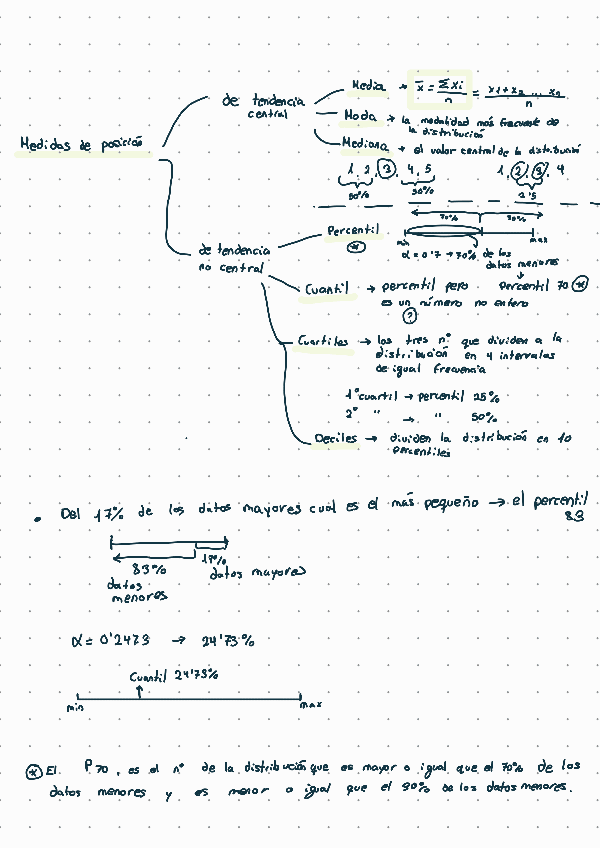 Medidas de posición
de tendencia
central
Media → x̄ = Σxi / n = x1+x2 ... xn / n
Moda → la modalidad más frecuente de
la distribución
Mediana → el valor central de la distribución
1, 2, 3, 4, 5
50% 50%
1, 2, 3, 4
2'5
de tendencia
no central
Percentil
*
70% 30%
min max
α = 0'7 → 70% de los
datos menores
Percentil 70 *
Cuantil → percentil pero
es un número no entero
?
Cuartiles → los tres nº que dividen a la
distribución en 4 intervalos
de igual frecuencia
1º cuartil → percentil 25%
2º " → " 50%
Deciles → dividen la distribución en 10
percentiles
• Del 17% de los datos mayores cual es el más pequeño → el percentil
83
83% 17%
datos mayores
datos
menores
α = 0'2473 → 24'73%
Cuantil 24'73%
min max
* El P70, es el nº de la distribución que es mayor o igual que el 70% de los
datos menores y es menor o igual que el 30% de los datos menores.